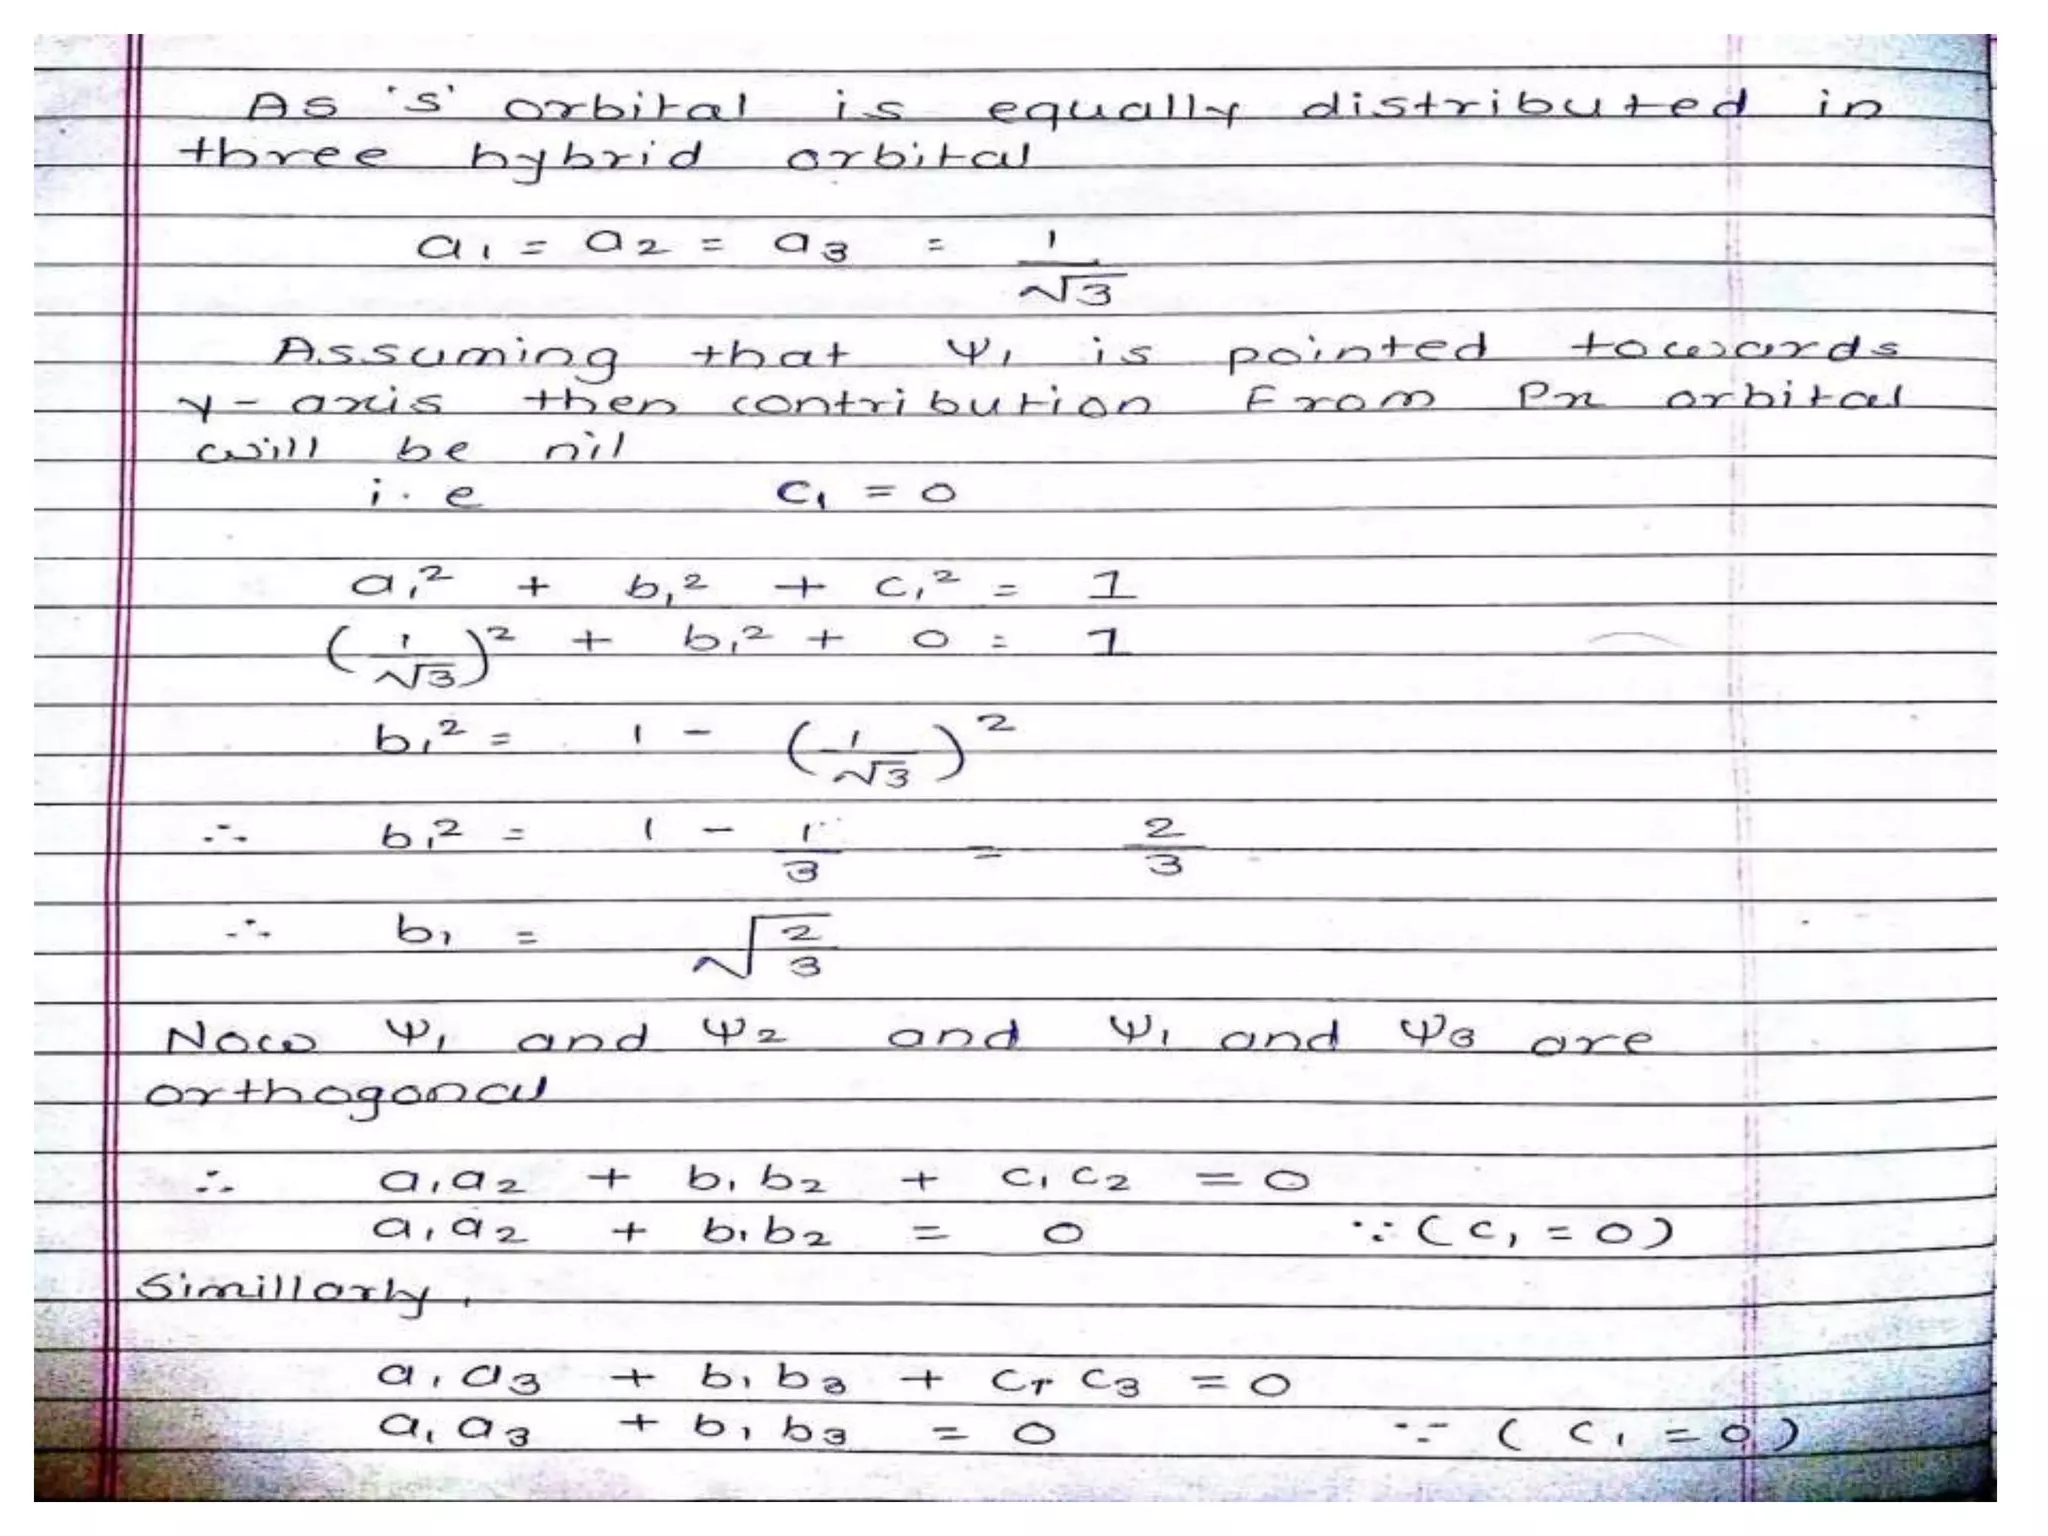 As 's' orbital is equally distributed in
three hybrid orbital
a₁ = a₂ = a₃ = 1/√3
Assuming that Ψ₁ is pointed towards
y-axis then contribution From Px orbital
will be nil
i.e c₁ = 0
a₁² + b₁² + c₁² = 1
(1/√3)² + b₁² + 0 = 1
b₁² = 1 - (1/√3)²
∴ b₁² = 1 - 1/3 = 2/3
∴ b₁ = √(2/3)
Now Ψ₁ and Ψ₂ and Ψ₁ and Ψ₃ are
orthogonal
∴ a₁a₂ + b₁b₂ + c₁c₂ = 0
a₁a₂ + b₁b₂ = 0 ∵ (c₁ = 0)
Simillarly,
a₁a₃ + b₁b₃ + c₁c₃ = 0
a₁a₃ + b₁b₃ = 0 ∵ (c₁ = 0)